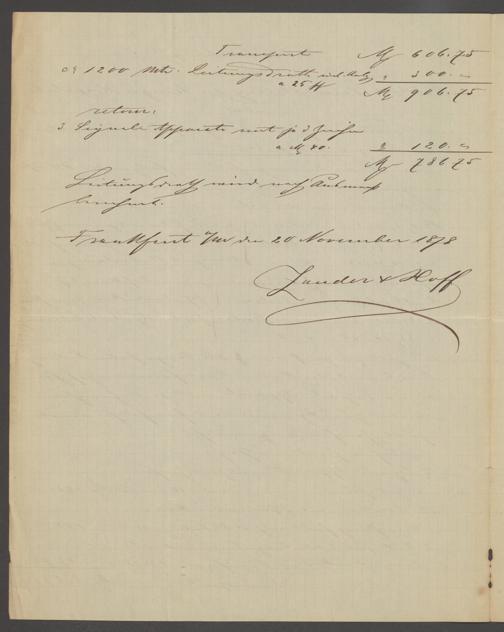 Transport M 606.75
ca 1200 Mtr. Leitungsdrath incl. " 300.-
a 25 ₰ M 906.75
retour:
3 Signale Apparate mit je 3 Zeichen
a M 40. " 120.-
M 786.75
Leitungsdrath wird nach Ausmaß
berechnet.
Frankfurt a/M den 20 November 1878
Zander & Hoff